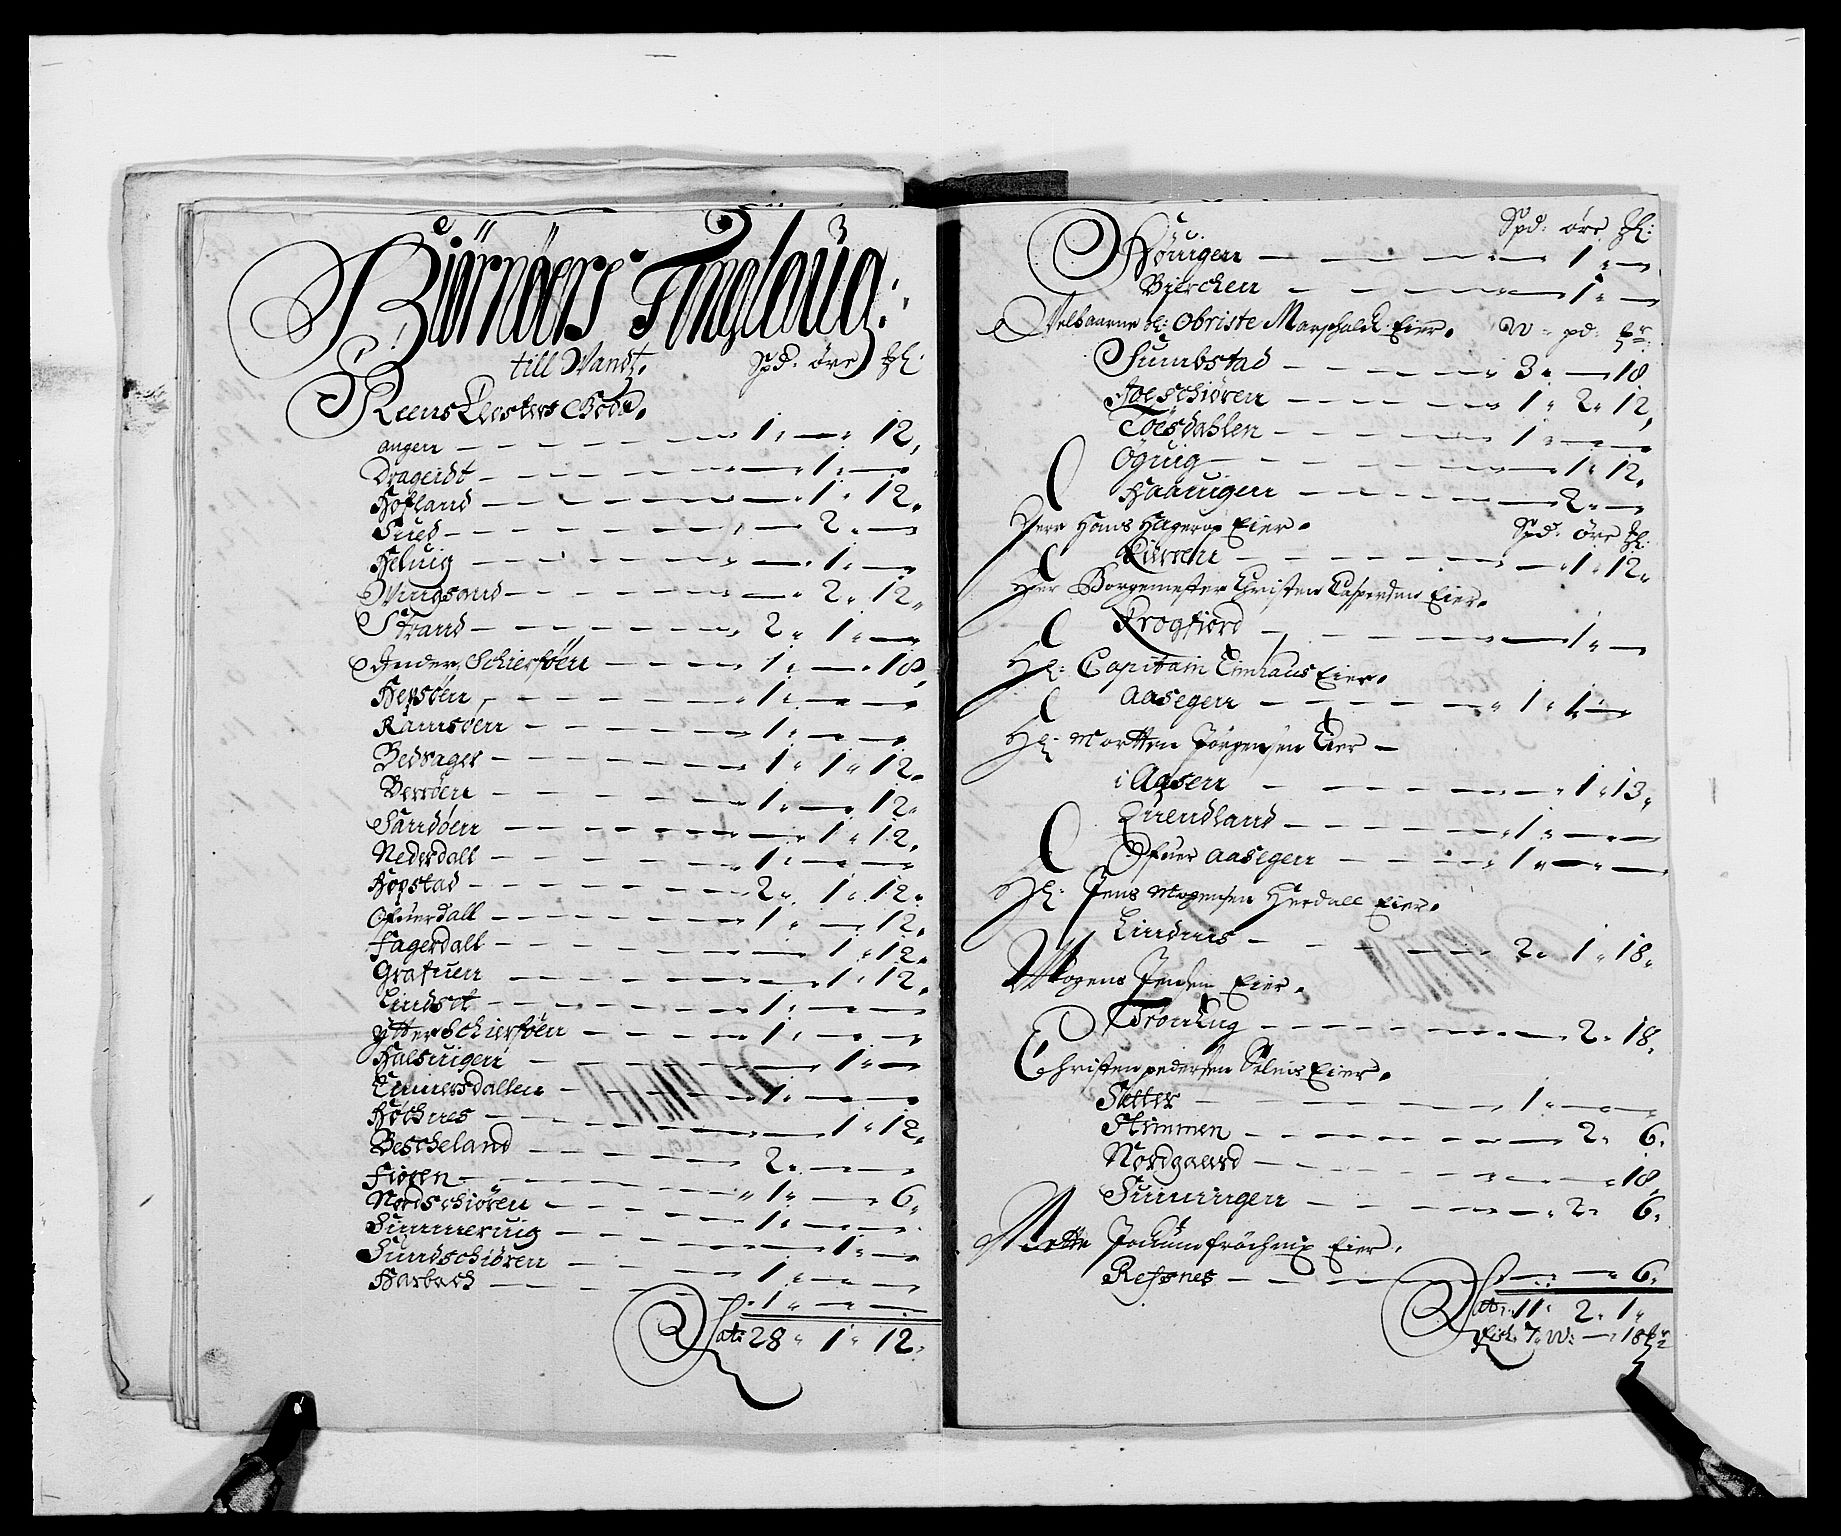 Biørnöers Tinglaüg:
till Vandz. Spd: öre
Reens Closters Godz.
angen — 1 „ — „ 12,
Drageidt — 1 „ —
Hofland — 1 „ 12„
Sued — 2 „ —
Heluig — 1 „ —
Vingsand — 2 „ 12„
Strand — 2 „ 1 „ —
Ander Schiersöen — 1 „ — 18,
Hepsöen — 1 „ — „ —
Ramsöen — 1 „ — „ —
Bedsager — 1 „ 1 „ 12„
Berröen — 1 „ — 12„
Sandöen — 1 „ 12,
Nederdall — 1 „ — „ —
Hopstad — 2 „ 1 „ 12„
Ofuerdall — 1 „ — 12„
Fagerdall — 1 „ 12„
Grafuen — 1 „ 12„
Lindset — 1 „ — „ —
ytter Schiersöen — 1 „ — „ —
Halsuigen — 1 „ —
Ennersdallen — 1 „ — „ —
Hötnes — 1 „ 12„
Bescheland — 2 „ — „ —
Fiören — „ 1 „ — 6„
Nordschiören — 1 „ — „ —
Summeruig — 1 „ —
Sundschiören — 1 „ — „ —
Harbach — 1 „ — „ —
Lat: 28 „ 1 „ 12„
Spd: öre
Höuigen — 1 „ —
Bierchen — 1 „ —
Velbaarne Hl: Obriste Marschalck Eier. W „ pd:
Sumbstad — 3 „ — 18
Aoeschiören — 1 „ 2 „ 12,
Töesdahlen — 1 „ — „ —
Öguig — 1 „ 12„
Haanigen — 2 „ —
Herr Hans Hagerup Eier. Spd: öre
Kürren — 1 „ 12„
Her Borgemester Christen Caspersen Eier.
Krogfiord — 1 „ —
Hl: Capitain Einhaus Eier.
Aasegen — „ 1 „ 1 „ —
Hl: Mortten Jörgensen Eier —
i Aasen — 1 „ 13„
Quendland — 1 „ — „ —
Ofuer Aasegen — 1 „ — „ —
Hl: Jens Mogensen Herdall Eier.
Lindnis — 2 „ 1 „ 18„
Mogens Jensen Eier.
Trönuug — 2 „ 18„
Christen pedersen Selnis Eier.
Sætter — 1 „ — „ —
Stimmen — 2 „ 6„
Nordgaard — 18„
Summingen — 2 „ 6„
Mette Jochum fröchnip Eier.
Refsnes — 6„
Lat: 11 „ 2 „ 1 „
Fisk 7 „ W: — 18